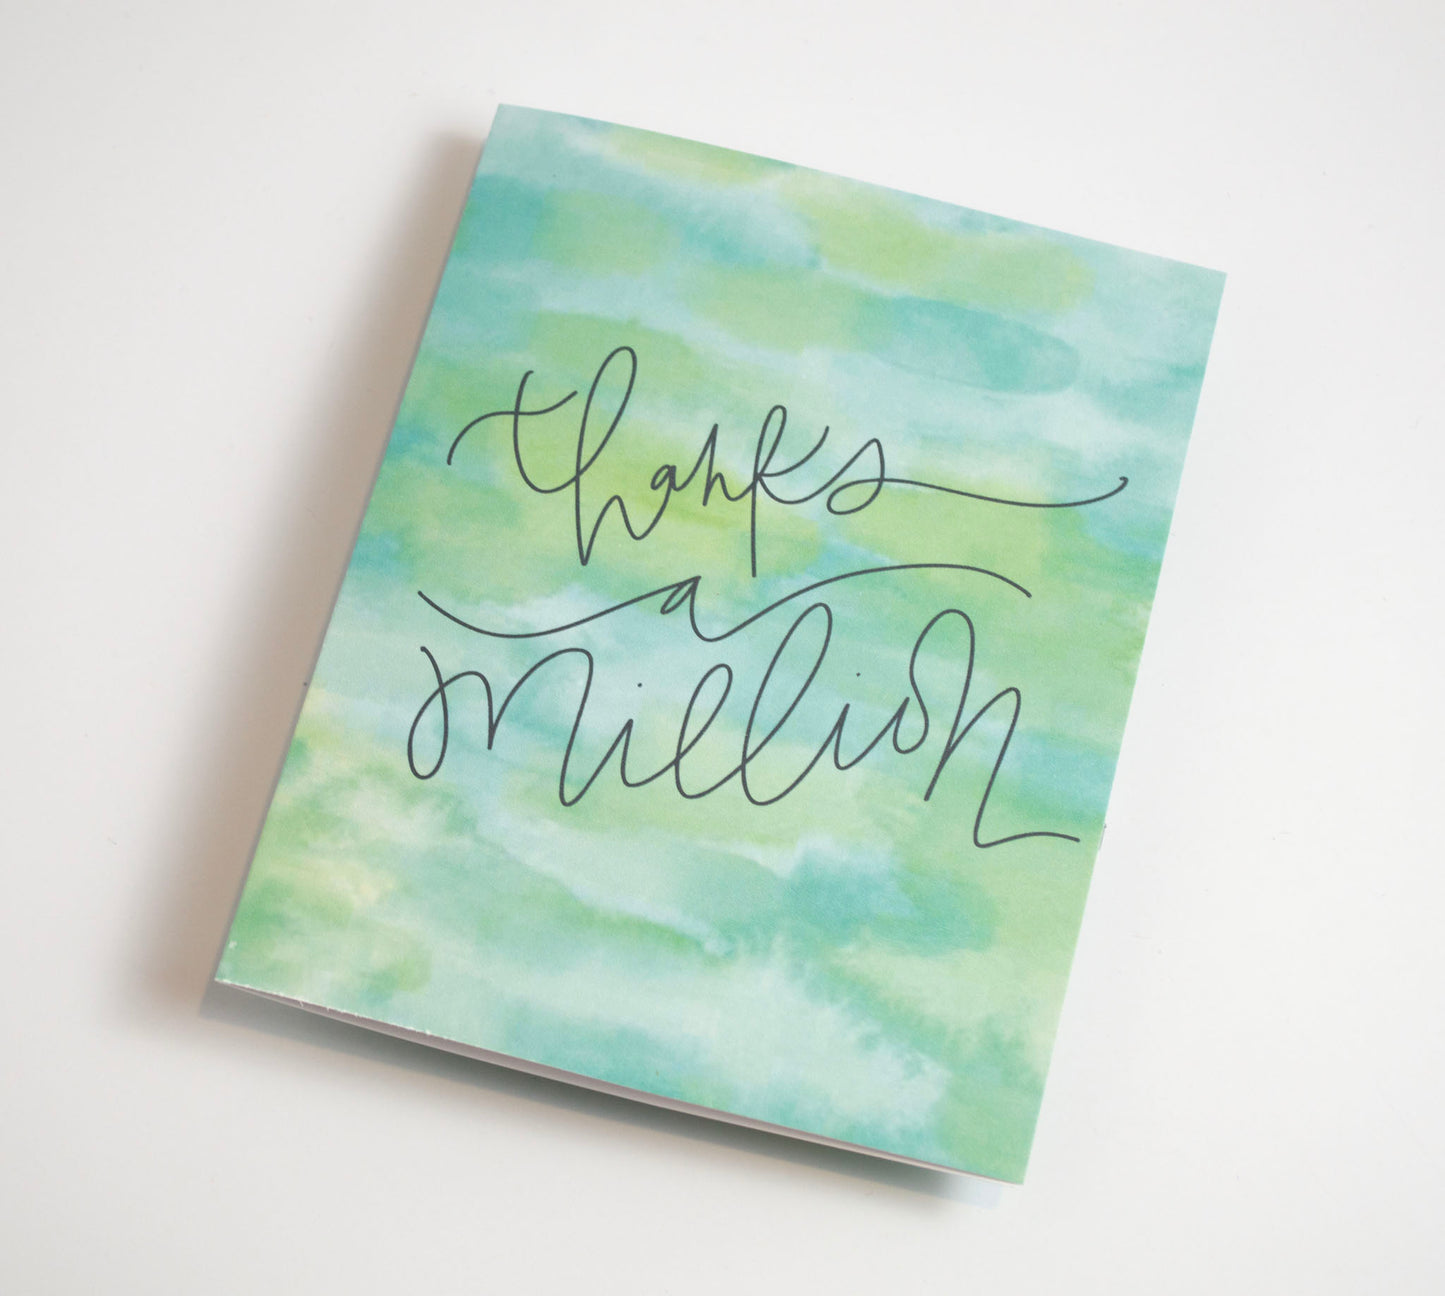 thanks
a
million